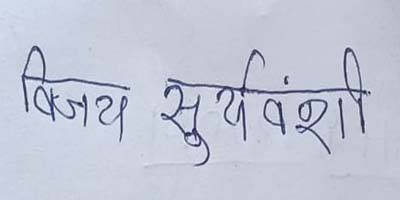 विजय सुर्यवंशी